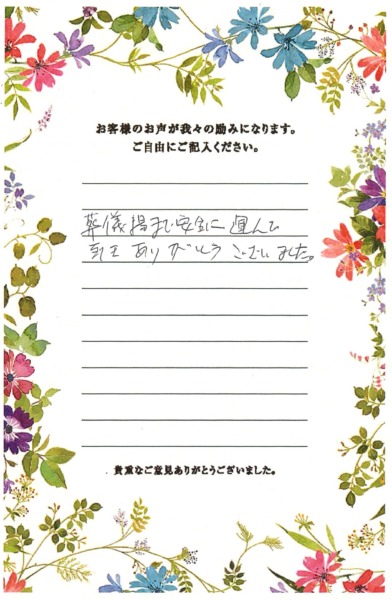 お客様のお声が我々の励みになります。
ご自由にご記入ください。
葬儀場まで安全に運んで
頂き ありがとうございました。
貴重なご意見ありがとうございました。